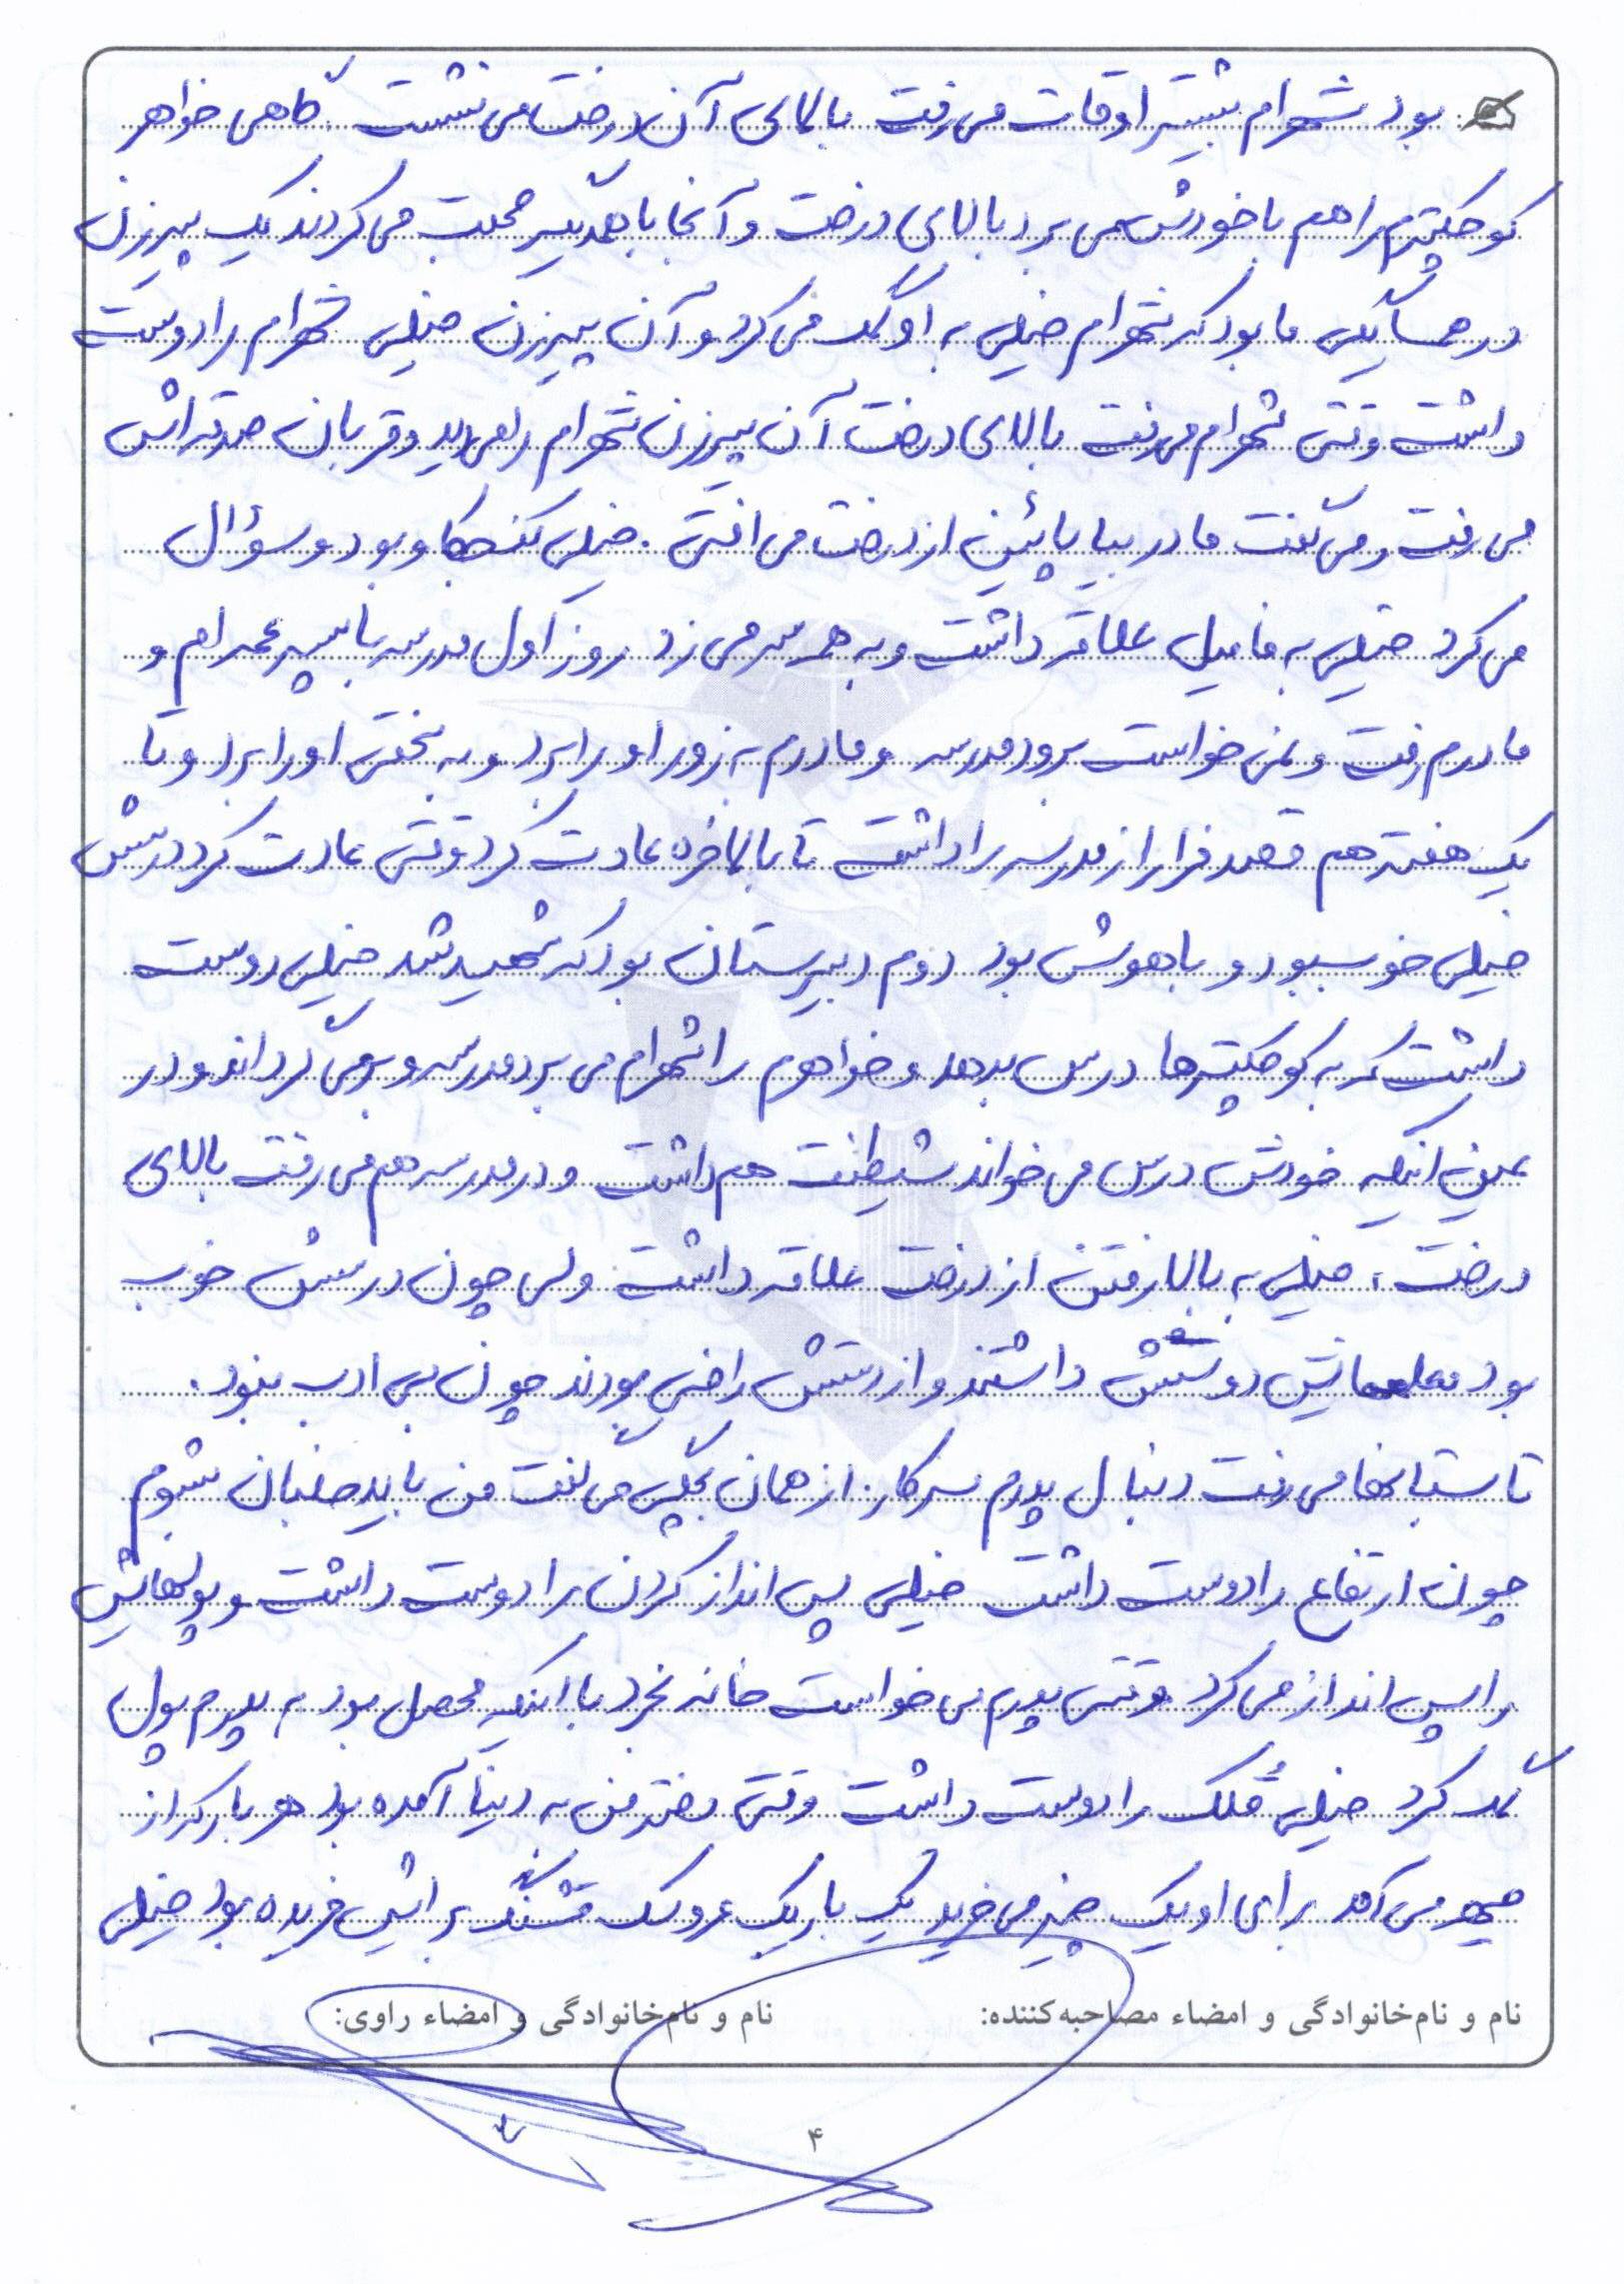 بود شهرام بیشتر اوقات می رفت بالای آن درخت می نشست. گاهی خواهر
کوچکترم را هم با خودش می برد بالای درخت و آنجا با همدیگر صحبت می کردند یک پیرزن
در همسایگی ما بود که شهرام خیلی به او کمک می کرد و آن پیرزن خیلی شهرام را دوست
داشت وقتی شهرام می رفت بالای درخت آن پیرزن شهرام را می دید و قربان صدقه اش
می رفت و می گفت مادر بیا پائین از درخت می افتی. خیلی کنجکاو بود و سؤال
می کرد خیلی به فامیل علاقه داشت و به همه سر می زد روز اول مدرسه با پسر عمه ام و
مادرم رفت و نمی خواست برود مدرسه و مادرم به زور او را برد و به سختی او را برد و تا
یک هفته هم قصد فرار از مدرسه را داشت تا بالاخره عادت کرد وقتی عادت کرد درسش
خیلی خوب بود و باهوش بود دوم دبیرستان بود که شهید شد خیلی دوست
داشت که به کوچکترها درس بدهد و خواهرم را شهرام می برد مدرسه و برمی گرداند و در
عین اینکه خودش درس می خواند شیطنت هم داشت و در مدرسه هم می رفت بالای
درخت، خیلی به بالا رفتن از درخت علاقه داشت ولی چون درسش خوب
بود معلمهایش دوستش داشتند و از دستش راضی بودند چون بی ادب نبود.
تابستانها می رفت دنبال پدرم سر کار. از همان بچگی می گفت من باید خلبان شوم
چون ارتفاع را دوست داشت خیلی پس انداز کردن را دوست داشت و پولهایش
را پس انداز می کرد وقتی پدرم می خواست خانه بخرد با اینکه محصل بود به پدرم پول
کمک کرد خیلی قلک را دوست داشت وقتی دختر من به دنیا آمده بود هر بار که از
می آمد برای او یک چیز می خرید یک بار یک عروسک قشنگ برایش خریده بود خیلی
نام و نام‌خانوادگی و امضاء مصاحبه‌کننده:
نام و نام‌خانوادگی و امضاء راوی:
۴